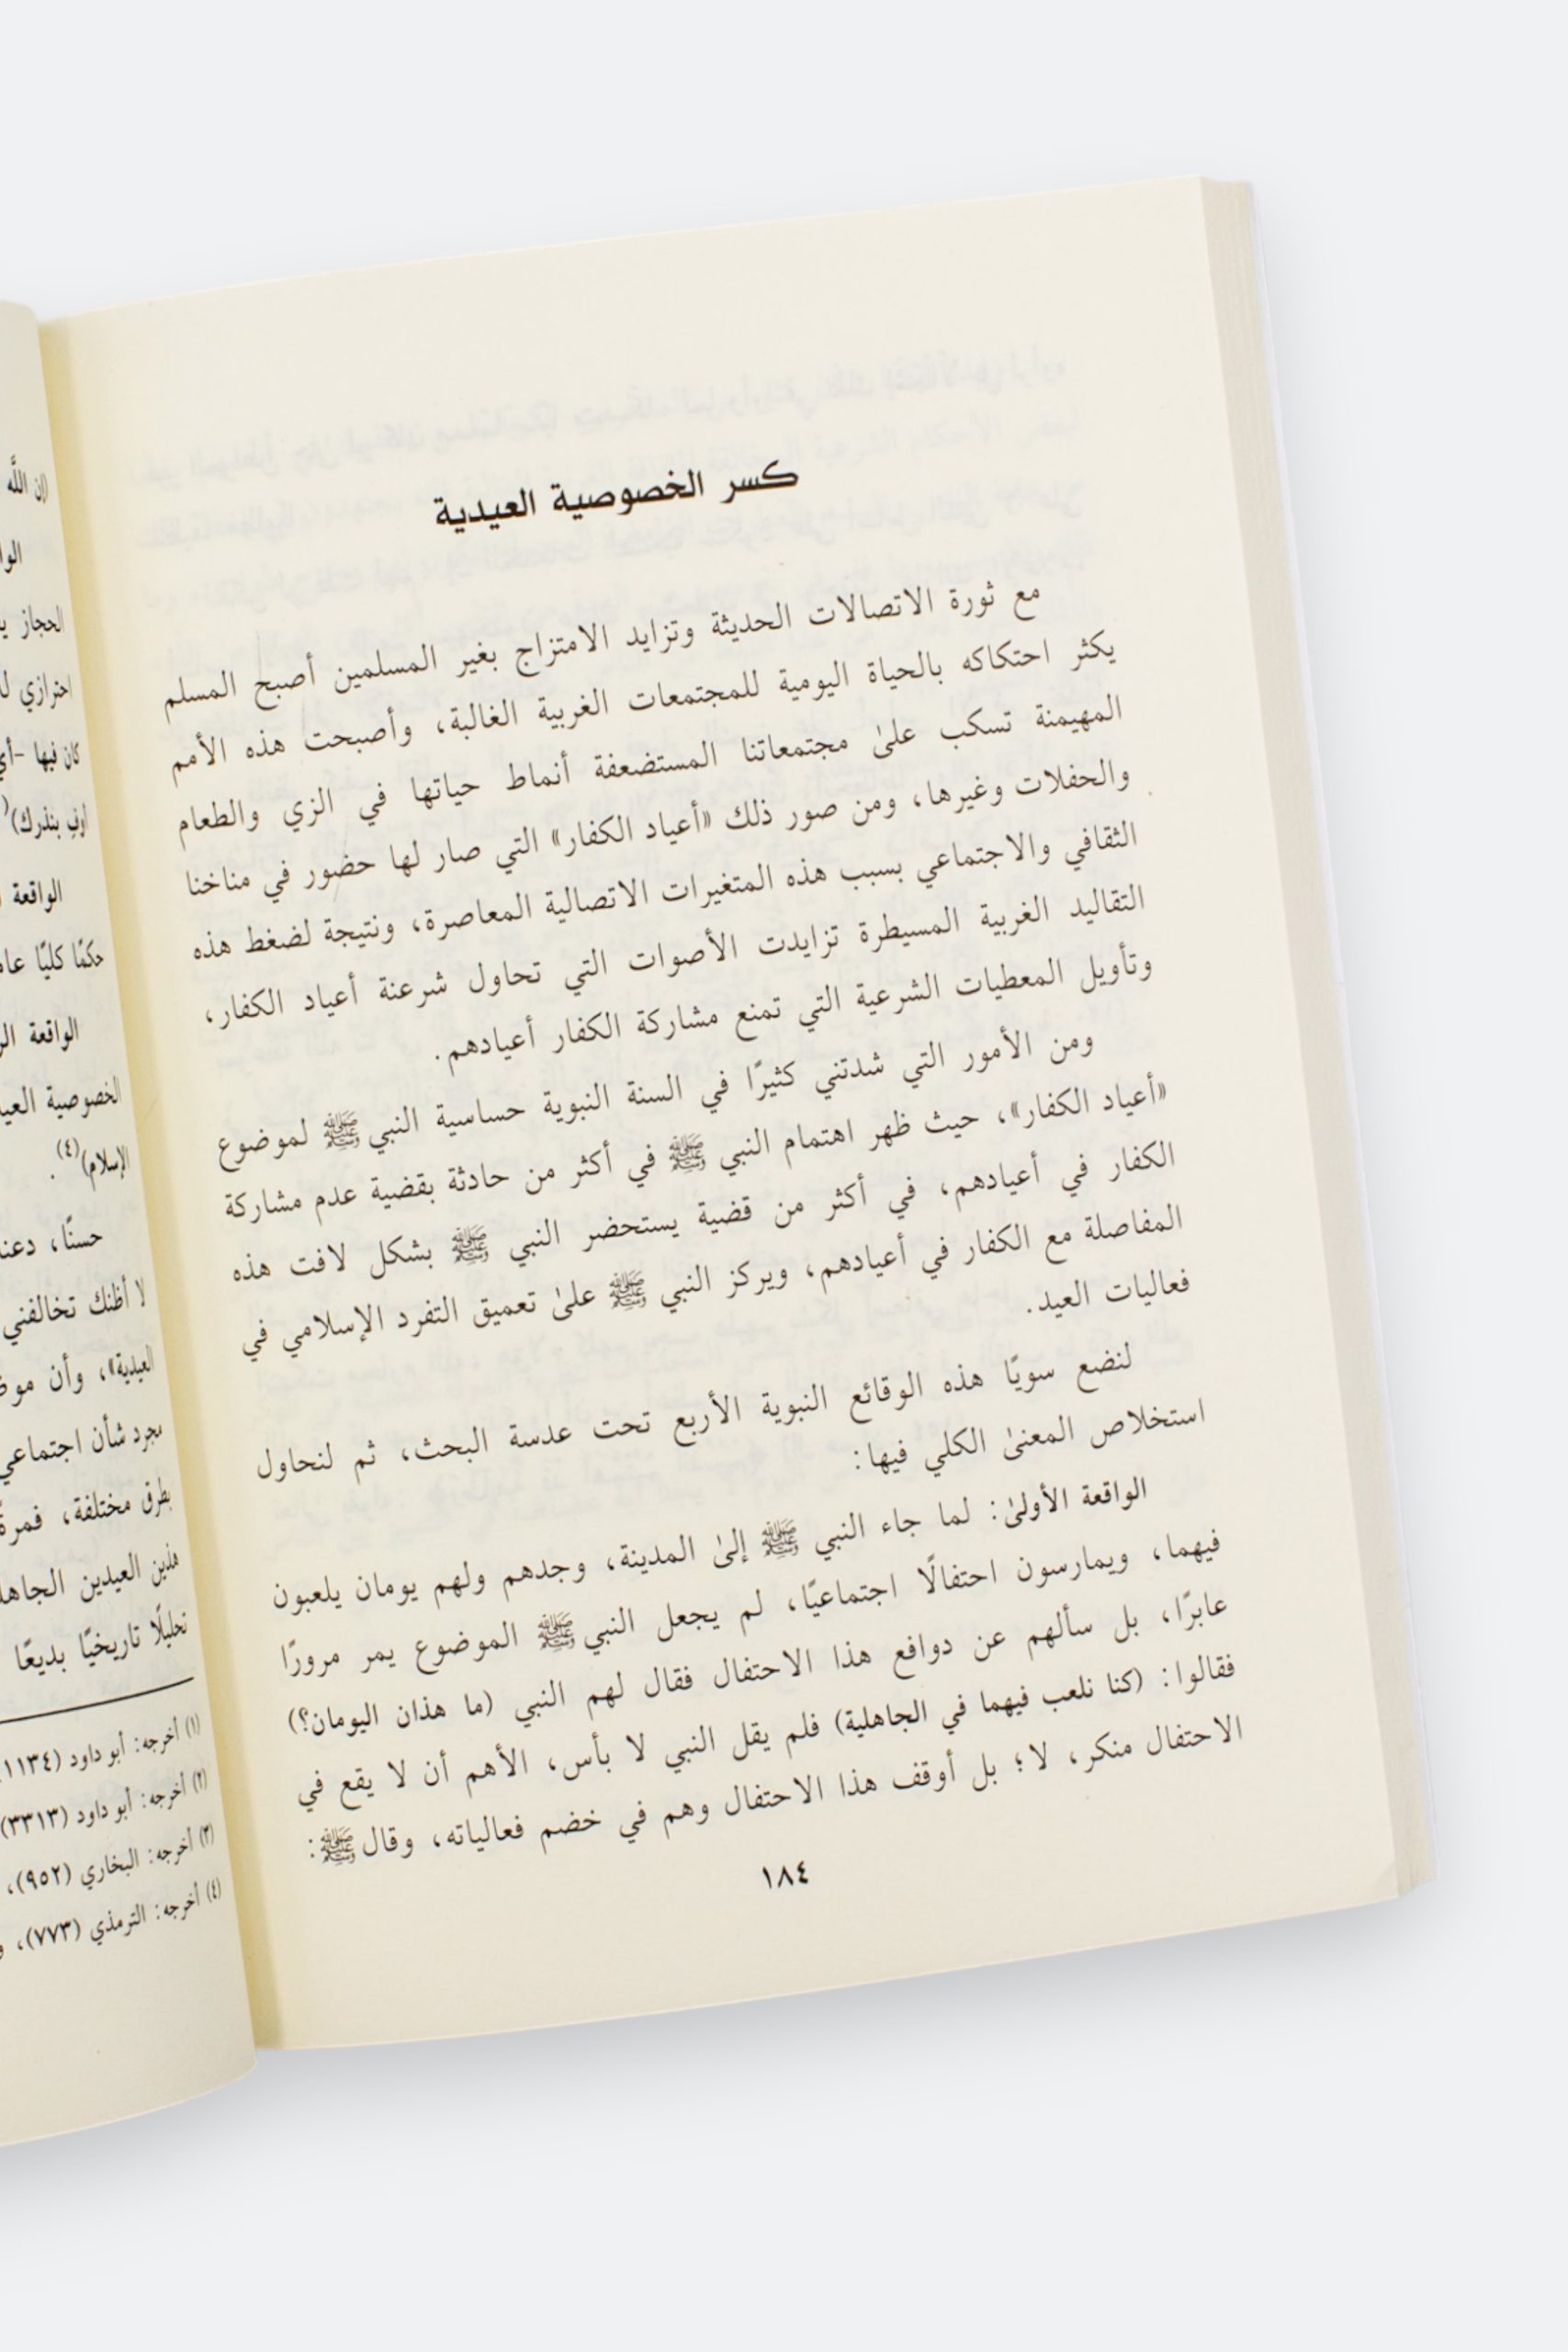 كسر الخصوصية العيدية
مع ثورة الاتصالات الحديثة وتزايد الامتزاج بغير المسلمين أصبح المسلم
يكثر احتكاكه بالحياة اليومية للمجتمعات الغربية الغالبة، وأصبحت هذه الأمم
المهيمنة تسكب علىٰ مجتمعاتنا المستضعفة أنماط حياتها في الزي والطعام
والحفلات وغيرها، ومن صور ذلك «أعياد الكفار» التي صار لها حضور في مناخنا
الثقافي والاجتماعي بسبب هذه المتغيرات الاتصالية المعاصرة، ونتيجة لضغط هذه
التقاليد الغربية المسيطرة تزايدت الأصوات التي تحاول شرعنة أعياد الكفار،
وتأويل المعطيات الشرعية التي تمنع مشاركة الكفار أعيادهم.
ومن الأمور التي شدتني كثيرًا في السنة النبوية حساسية النبي ﷺ لموضوع
«أعياد الكفار»، حيث ظهر اهتمام النبي ﷺ في أكثر من حادثة بقضية عدم مشاركة
الكفار في أعيادهم، في أكثر من قضية يستحضر النبي ﷺ بشكل لافت هذه
المفاصلة مع الكفار في أعيادهم، ويركز النبي ﷺ علىٰ تعميق التفرد الإسلامي في
فعاليات العيد.
لنضع سويًا هذه الوقائع النبوية الأربع تحت عدسة البحث، ثم لنحاول
استخلاص المعنىٰ الكلي فيها:
الواقعة الأولىٰ: لما جاء النبي ﷺ إلىٰ المدينة، وجدهم ولهم يومان يلعبون
فيهما، ويمارسون احتفالًا اجتماعيًا، لم يجعل النبي ﷺ الموضوع يمر مرورًا
عابرًا، بل سألهم عن دوافع هذا الاحتفال فقال لهم النبي (ما هذان اليومان؟)
فقالوا: (كنا نلعب فيهما في الجاهلية) فلم يقل النبي لا بأس، الأهم أن لا يقع في
الاحتفال منكر، لا؛ بل أوقف هذا الاحتفال وهم في خضم فعالياته، وقال ﷺ:
١٨٤
إن اللَّه
الحجاز
احترازي
كان فيها
أوفِ بنذرك)
الواقعة
حكمًا كليًا
الواقعة
الخصوصية
الإسلام)(٤).
حسنًا،
لا أظنك تخالفني
العيدية»، وأن
مجرد شأن اجتماعي
بطرق مختلفة،
هذين العيدين
تحليلًا تاريخيًا بديعًا
(١) أخرجه: أبو داود (١١٣٤
(٢) أخرجه: أبو داود (٣٣١٣)
(٣) أخرجه: البخاري (٩٥٢)،
(٤) أخرجه: الترمذي (٧٧٣)،